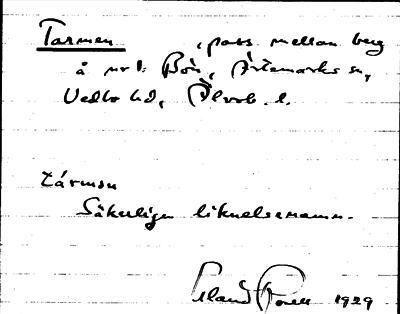 Tarmen , pass mellan berg
å nr 1. Bön, Ärtemarks sn,
Vedbo hd, Älvsb. l.
tármən
Säkerligen liknelsenamn.
Erland Rosell 1929